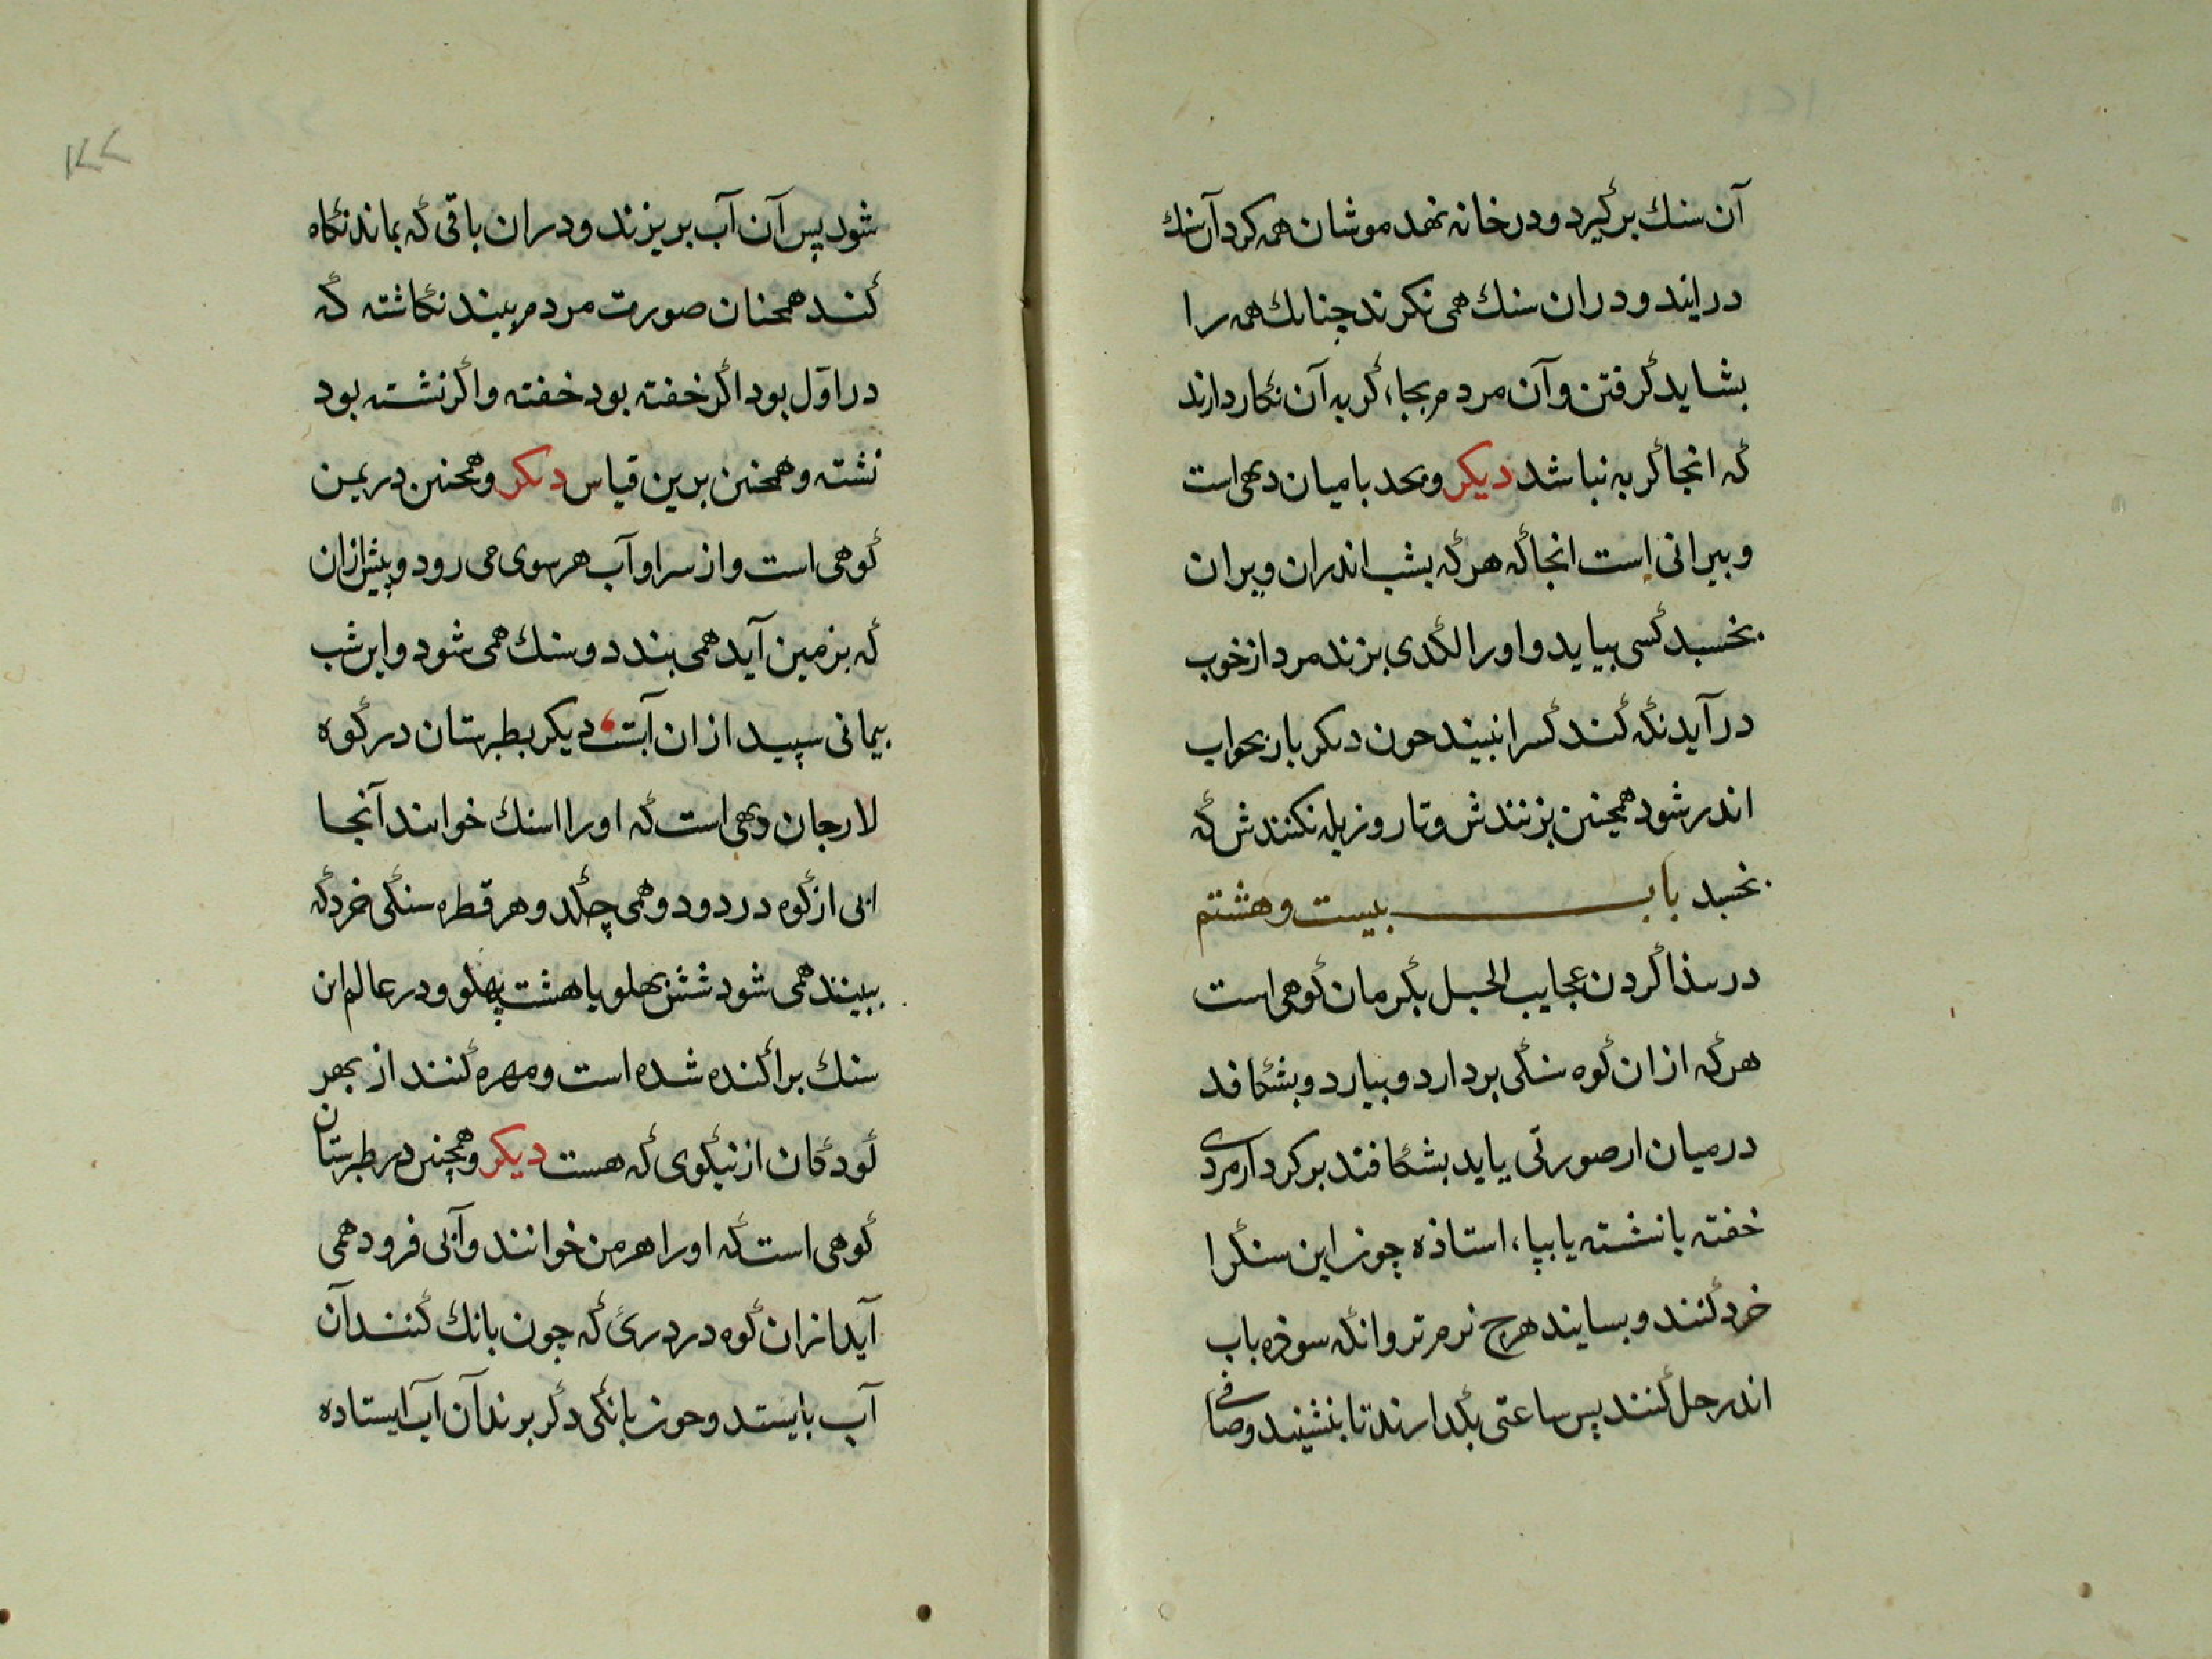 آن سنك بركيرد و در خانه نهد موشان همه كرد آن سنك
در ايند و دران سنك همی نكرند چنانك همه را
بشايد كرفتن و آن مردم بجاء كربه آن نكار دارند
كه انجا كربه نباشد ديكر و بحد باميان دهی است
و بيرانی است انجا كه هركه بشب اندران ويران
بخسبد كسی بيايد و اورا لكدی بزند مرد از خوب
در آيد نكه كند كسرا نبيند حون دىكر بار بحواب
اندر شود همچنىن بزنندش و تا روز يله نكنندش كه
بخسبد بابـــــ بيست و هشتم
در ىىذا كردن عجايب الجبل بكرمان كوهی است
هركه ازان كوه سنكی بردارد و بيارد و بشكافد
در ميان او صورتی يابد بشكافند بر كردار مردی
خفته يا نشسته يا بپاء استاذه چون اين سنكرا
خرد كنند و بسايند هرچ نرم تر وانكه سوده باب
اندر حل كنند پس ساعتی بكدارند تا بنشيند و صافی
شود پس آن آب بريزند و دران باقی كه بماند نكاه
كند همحنان صورت مردم بيند نكاشته كه
در اوّل بود اكر خفته بود خفته و اكر نشسته بود
نشسته و همحنىن برين قياس دىكر و همحنىن در يمن
كوهی است و از سر او آب هر سوی می رود و پيش ازان
كه بزمين آيد همی بندد و سنك همی شود و اين شب
يمانی سپيد ازان آبست ديكر بطبرستان در كوه
لارجان دهی است كه اورا اسنك خوانند آنجا
ابی از كوه در دود و همی چكد و هر قطره سنكی خرد كه
ببينند همی شود شش پهلو يا هشت پهلو و در عالم ان
سنك پراكنده شده است و مهره كنند از بهر
كودكان از نيكوی كه هست ديكر و همچنىن در طبرستان
كوهی است كه اورا هرمن خوانند و آبی فرود همی
آيد ازان كوه در درىٔ كه چون بانك كنند آن
آب بايستد و حون بانكی دكر برند آن آب ايستاده